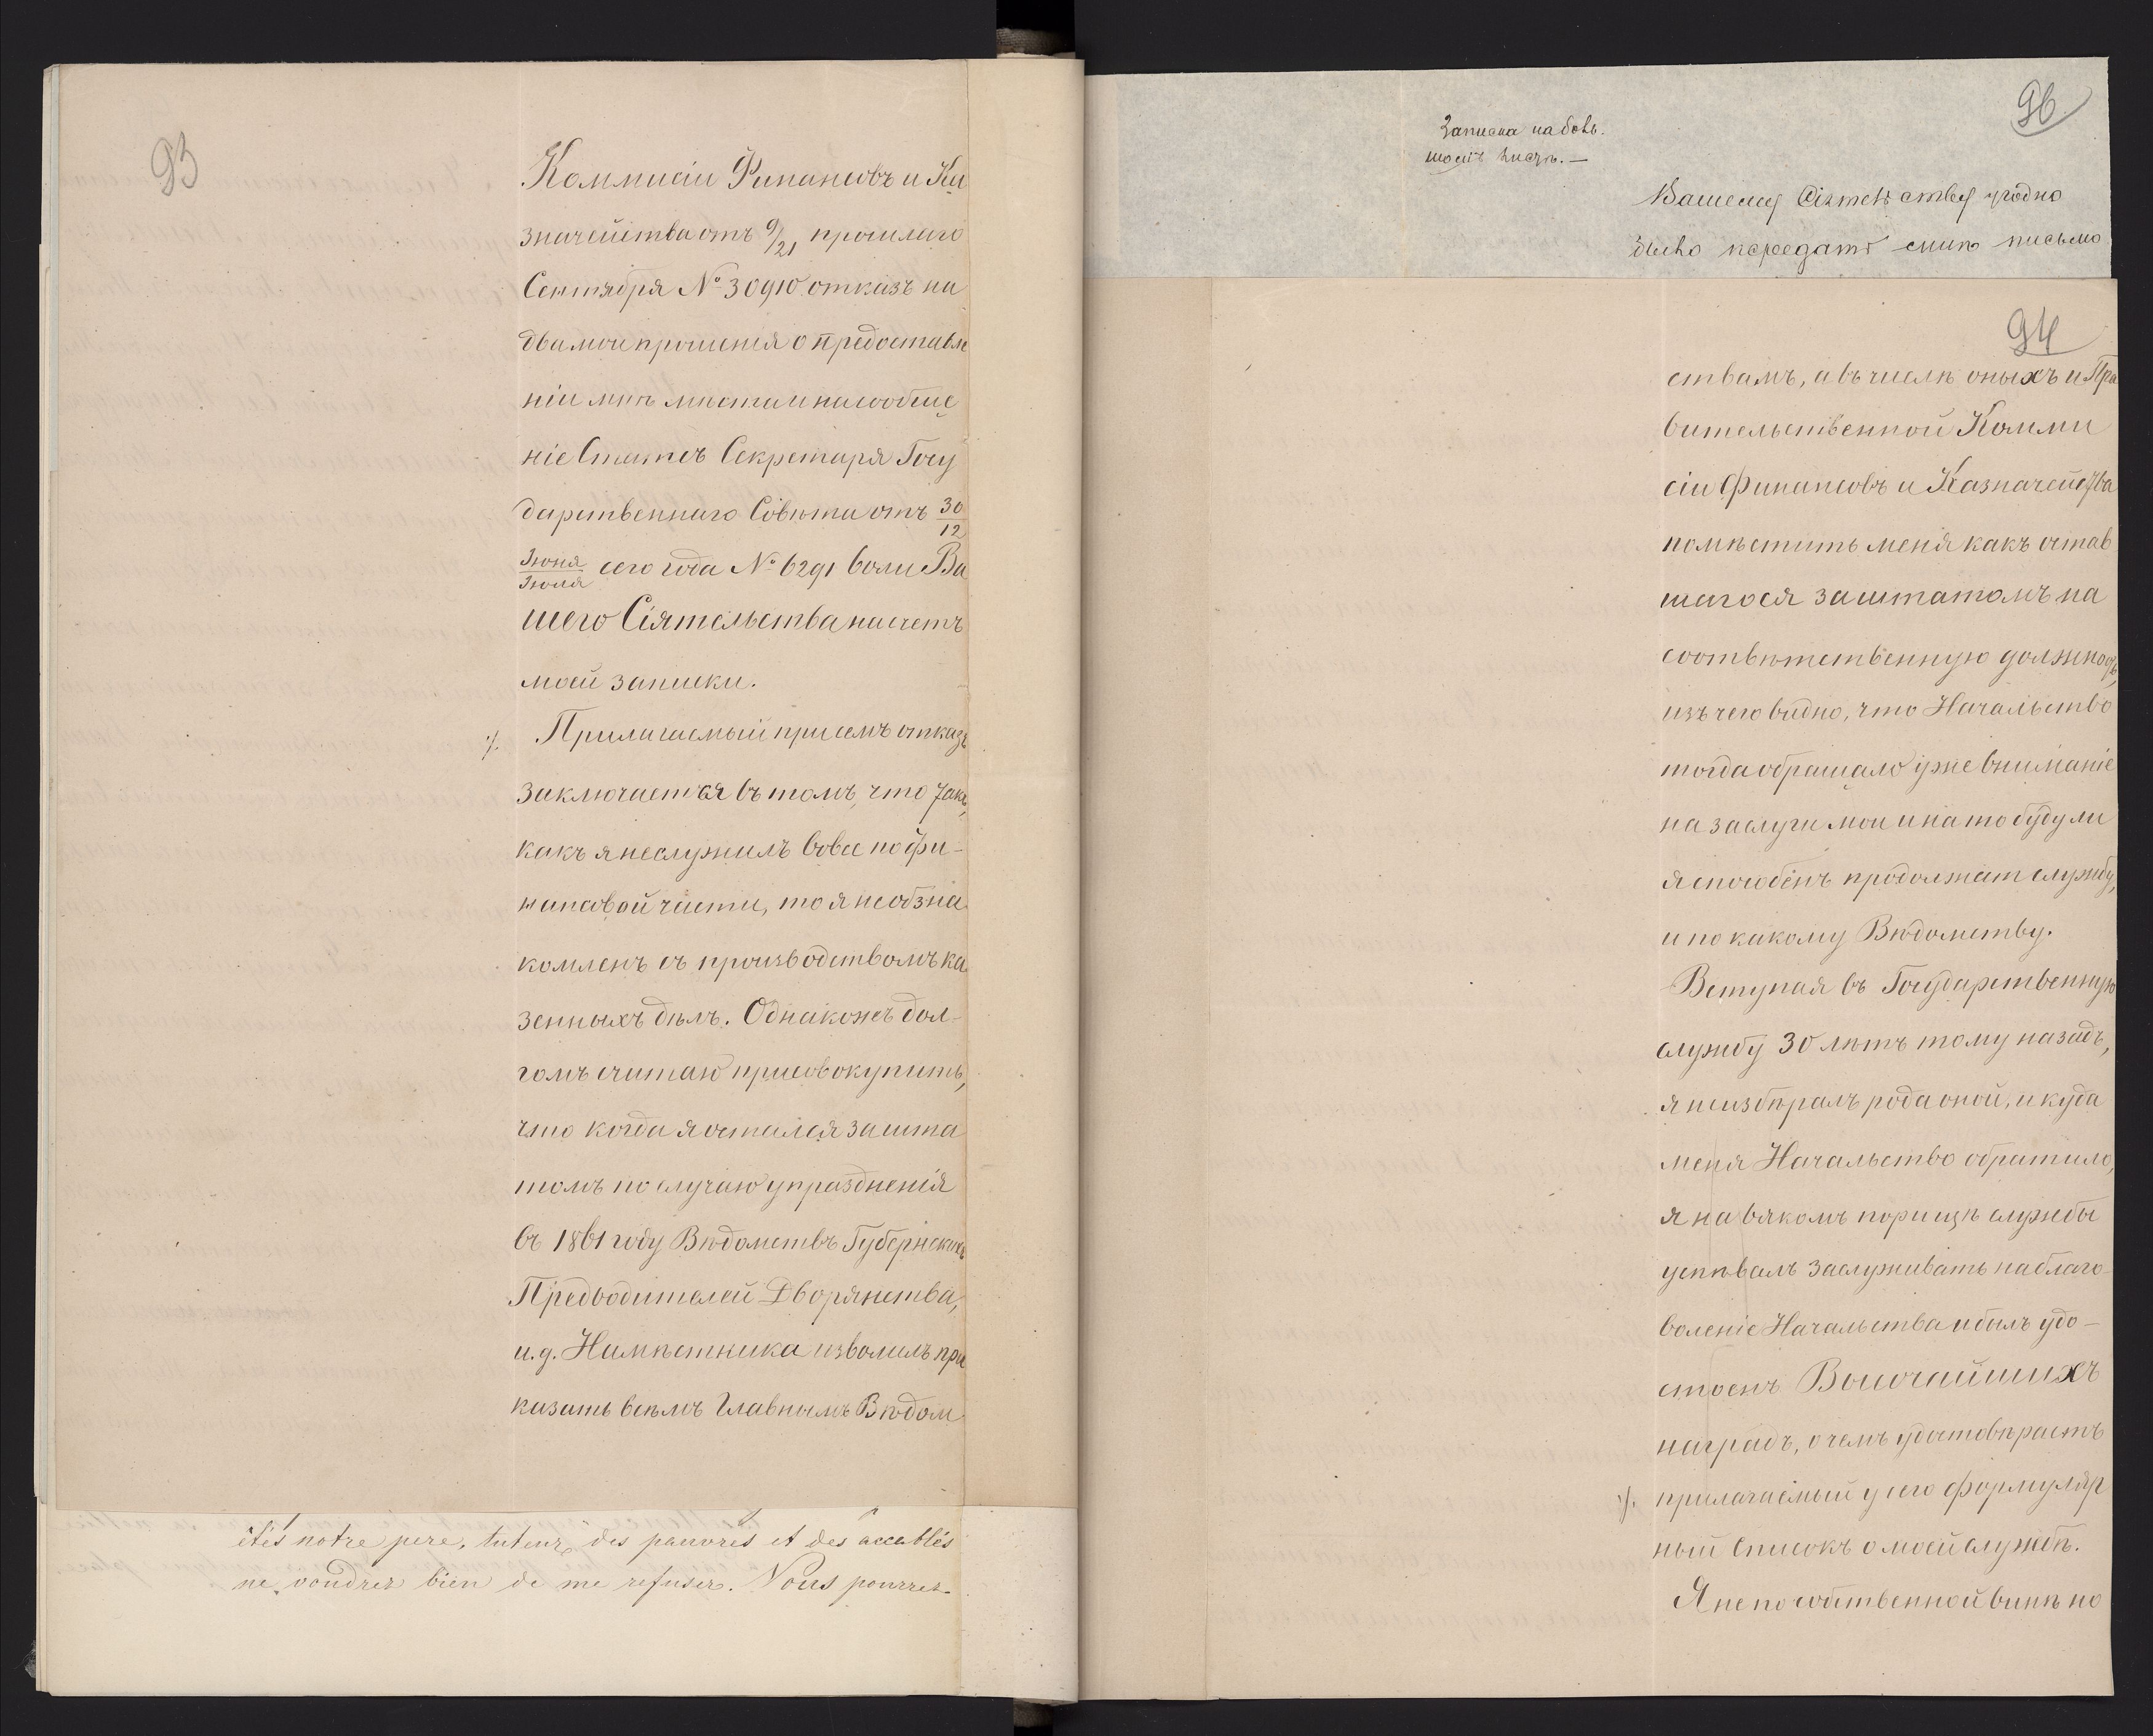 93
Коммисіи Финансовъ и Ка
значейства отъ 9/21 прошлаго
Сентября № 30910 отказъ на
два мои прошенія о предоставле
ніи мнѣ мѣста и на сообще
ніе Статсъ Секретаря Госу
дарственнаго Совѣта отъ 30/12
Іюня/Іюля сего года № 6291 воли Ва
шего Сіятельства на счетъ
моей записки.
·/. Прилагаемый при семъ отказъ
заключается въ томъ, что такъ,
какъ я неслужилъ вовсе по фи-
нансовой части, то я необзна
комленъ съ производствомъ ка
зенныхъ дѣлъ. Однакожъ дол-
гомъ считаю присовокупить,
что когда я остался за шта
томъ по случаю упраздненія
въ 1861 году Вѣдомствъ Губернскихъ
Предводителей Дворянства,
и. д. Намѣстника изволилъ при
казать всѣмъ Главнымъ Вѣдом
êtes notre pere, tuteur des pauvres et des accablés
ne voudrez bien de me refuser. Vous pourrez
96
Записка на
Вашему Сіятельству угодно
было передать мнѣ письмо
94
ствамъ, а въ числѣ оныхъ и Пра
вительственной Комми
сіи Финансовъ и Казначейства
помѣстить меня какъ остав
шагося за штатомъ на
соотвѣтственную должность,
изъ чего видно, что Начальство
тогда обращало уже вниманіе
на заслуги мои и на то буду ли
я способенъ продолжать службу,
и по какому Вѣдомству.
Вступая въ Государственную
службу 30 лѣтъ тому назадъ,
я неизбиралъ рода оной, и куда
меня Начальство обратило,
я на всякомъ порищѣ службы
успѣвалъ заслуживать на благо-
воленіе Начальства и былъ удо-
стоенъ Высочайшихъ
наградъ, о чемъ удостовѣряетъ
·/. прилагаемый у сего формуляр
ный списокъ о моей службѣ.
Я не по собственной винѣ но